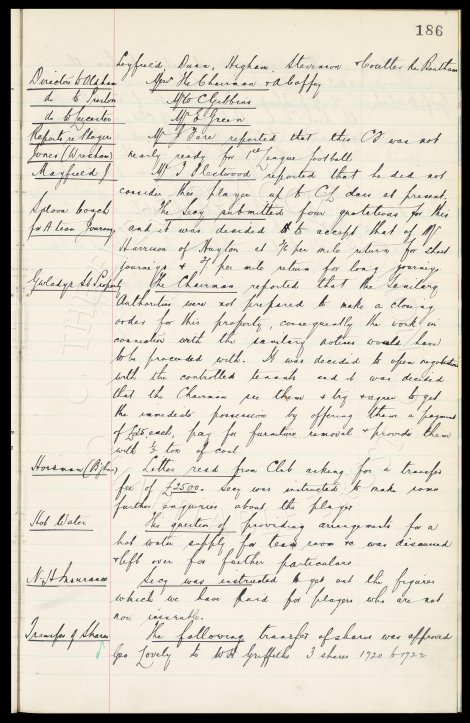 186
Loyfield, Dunn, Higham, Stevenson & Coulter re Bentham
Director to Oldham Messrs The Chairman & A Coffey
do to Preston Mr W C Gibbins
do to Leicester Mr E Green
Reports re Players Mr J Fare reported that this CF was not
Jones (Wrexham) nearly ready for 1st League football.
Maxfield J. Mr J Fleetwood reported that he did not
consider this player up to CL class at present.
Saloon Coach The Secy submitted four quotations for this
for A team Journeys and it was decided to accept that of Mr
Harrison of Huyton at per mile return for short
journeys & per mile return for long journeys.
Gwladys St Property The Chairman reported that the Sanitary
Authorities were not prepared to make a closing
order for this property, consequently the work in
connection with the sanitary notices would have
to be proceeded with. It was decided to open negotiations
with the controlled tenants and it was decided
that the Chairman see them & try & agree to get
the immediate possession by offering them a payment
of £25 each, pay for furniture removal & provide them
with ½ ton of coal.
Horsman (B) Letter read from Club asking for a transfer
fee of £2500. Secy was instructed to make some
further enquiries about the player
Hot Water The question of providing arrangements for a
hot water supply for team room &c was discussed
& left over for further particulars
N. H. Insurance Secy was instructed to get out the figures
which we have paid for players who are not
now insurable.
Transfer of Shares The following transfer of shares was approved
Geo Lovely to W H Griffiths 3 shares 1720 to 1722